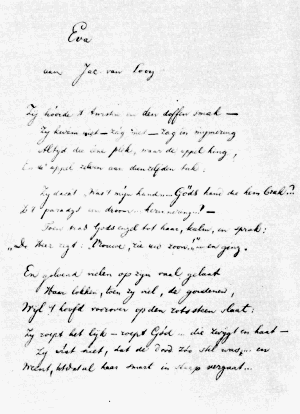 Eva
aan Jac. van Looy
Zij hoorde 't kersten en den doffen smak —
Zij kwam niet — zag niet — zag in mijmering
Altijd die ééne plek, waar de appel hing,
En d' appel aan dienzelfden tak:
Zij dacht "was 't mijn hand... Gods hand die hem brak?"
paradijs en droom en —
Gods engel tot haar, kalm, en sprak:
"De Heer zegt: Vrouwe, zie uw zoon!" — en ging.
En golvend vielen op zijn vaal gelaat
Haar lokken, toen zij viel, de gouden,
Wijl 't hoofd voorover op den rots steen slaat:
Zij roept het lijk — roept God ... die zwijgt en haat —
Zij wist niet, dat de dood zóó stil was, en
Weent, totdat haar smart in slaap vergaat...